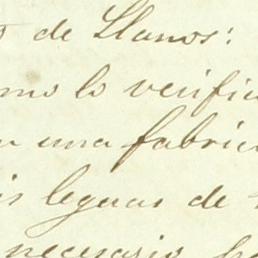 de Llanos:
mo lo verific
una fabric
leguas de
necesario